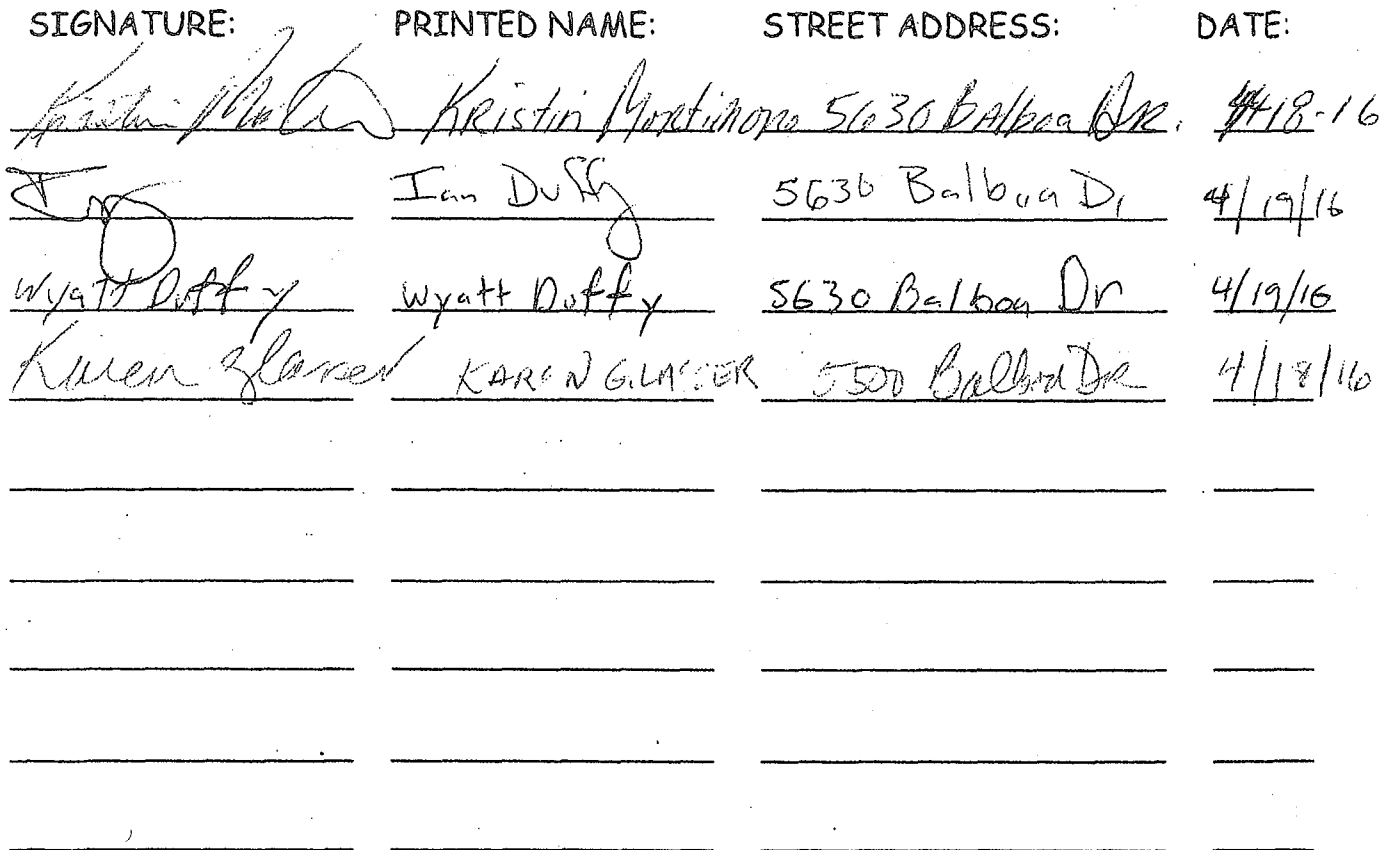 SIGNATURE: PRINTED NAME: STREET ADDRESS: DATE:
Kristin Kristin 5630 Balboa DR. 4-18-16
Ian Duffy 5630 Balboa Dr 4/19/16
Wyatt Duffy Wyatt Duffy 5630 Balboa Dr 4/19/16
Karen Glasser KAREN GLASSER 5500 Balboa DR 4/18/16